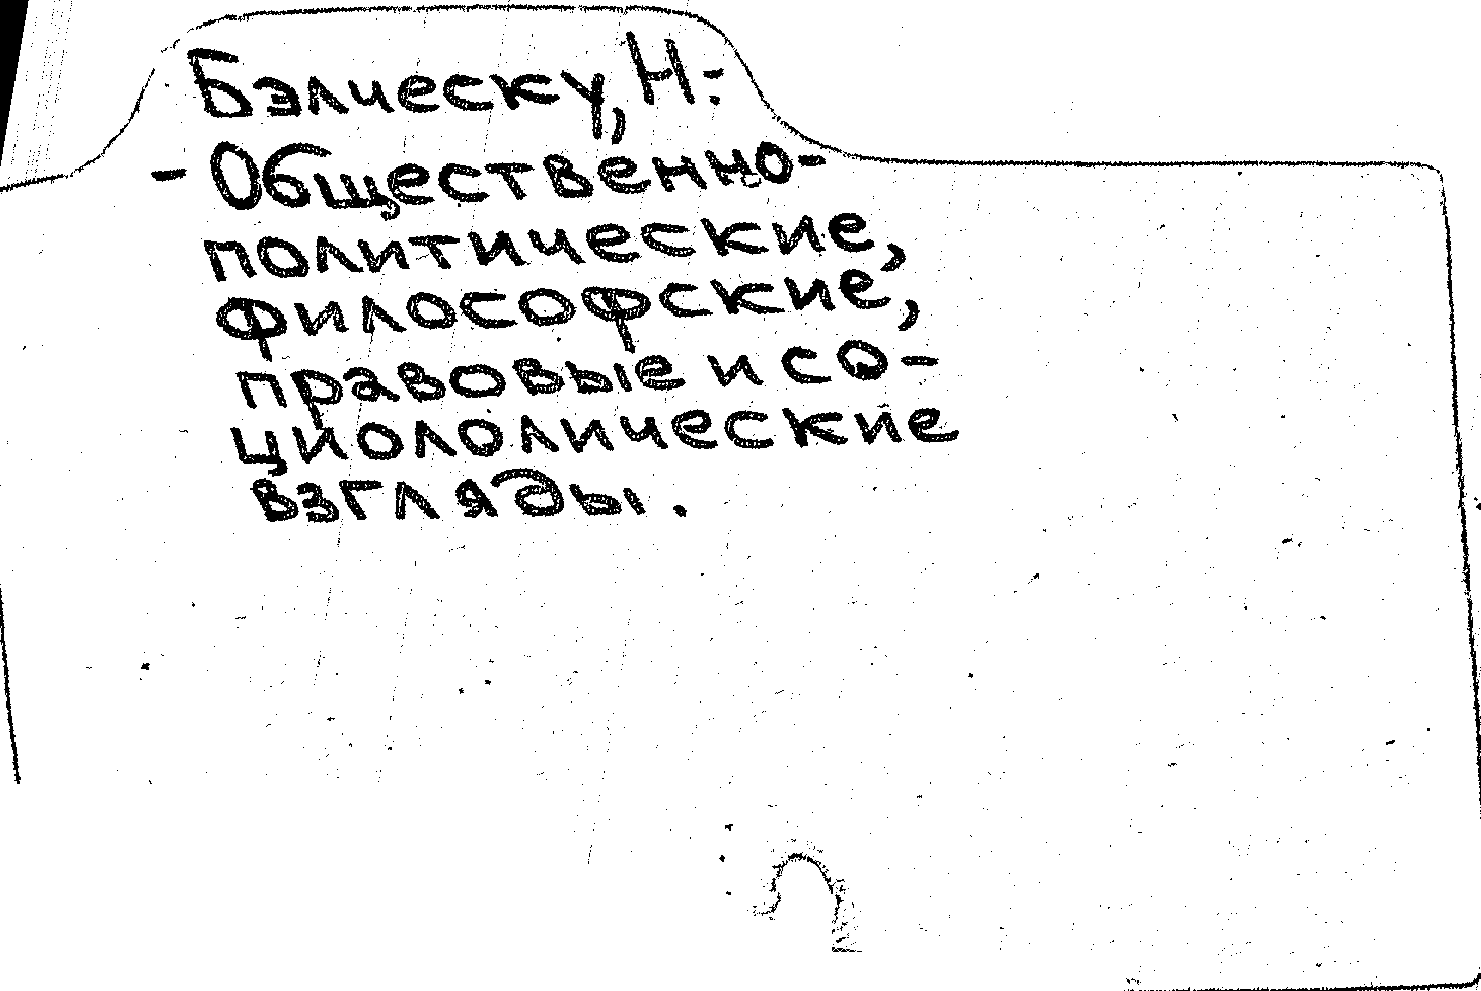 Бэлческу, Н.-
- Общественно-
политические,
философские,
правовые и со-
циололические
взгляды.